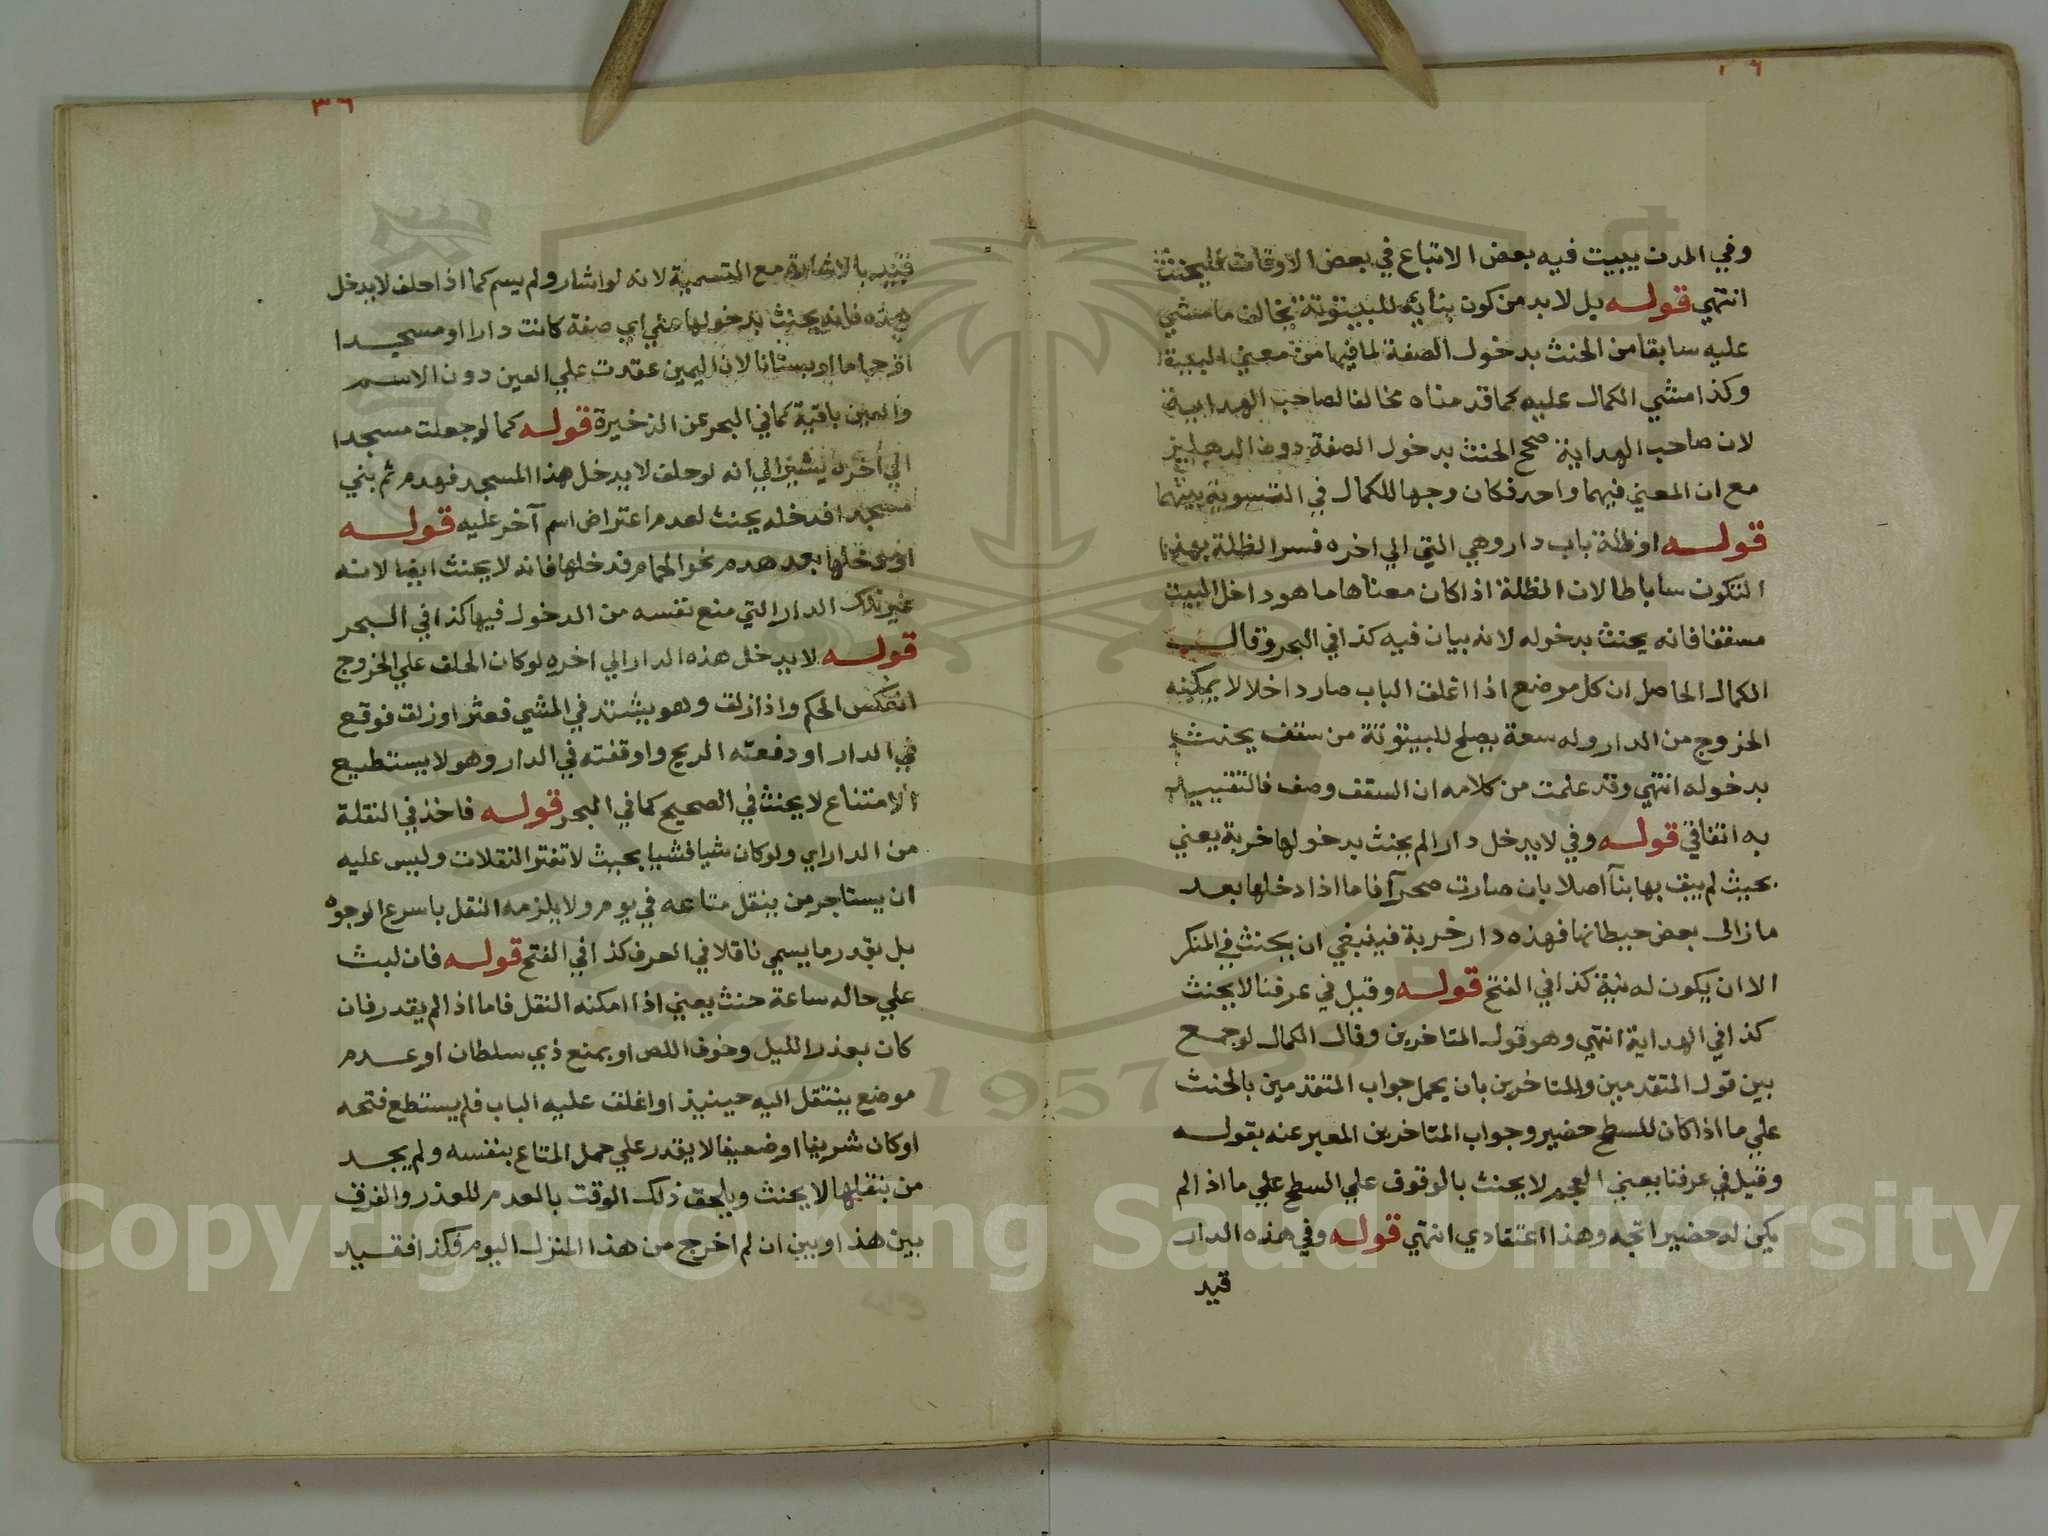 وفي المدن يبيت فيه بعض الاتباع في بعض الاوقات فليحنث
انتهي قوله بل لا بد من كون بنائه للبيتوتة يخالف ما مشي
عليه سابقا من الحنث بدخول الصفة لما فيها من معني البيتية
وكذا مشي الكمال عليه كما قدمناه مخالفا لصاحب الهداية
لان صاحب الهداية صحح الحنث بدخول الصفة دون الدهليز
مع ان المعني فيهما واحد فكان وجها للكمال في التسوية بينهما
قوله او ظلة باب دار وهي التي الي اخره فسر الظلة بهذا
لتكون ساباطا لان الظلة اذا كان معناها ما هو داخل البيت
مسقفا فانه يحنث بدخوله لانه بيات فيه كذا في البحر وقال
الكمال الحاصل ان كل موضع اذا اغلق الباب صار داخلا لا يمكنه
الخروج من الدار وله سعة يصلح للبيتوتة من سقف يحنث
بدخوله انتهي وقد علمت من كلامه ان السقف وصف فالتقييد
به اتفاقي قوله وفي لا يدخل دارا لم يحنث بدخولها خربة يعني
بحيث لم يبق بها بنآ اصلا بان صارت صحرآ فاما اذا دخلها بعد
ما زال بعض حيطانها فهذه دار خربة فينبغي ان يحنث في المنكر
الا ان يكون له نية كذا في الفتح قوله وقيل في عرفنا لا يحنث
كذا في الهداية انتهي وهو قول المتاخرين وقال الكمال لو جمع
بين قول المتقدمين والمتاخرين بان يحمل جواب المتقدمين بالحنث
علي ما اذا كان للسطح حضير وجواب المتاخرين المعبر عنه بقوله
وقيل في عرفنا يعني العجم لا يحنث بالوقوف علي السطح علي ما اذا لم
يكن له حضير اتجه وهذا اعتقادي انتهي قوله وفي هذه الدار
قيد
٣٦
قييد بالاشارة مع التسمية لانه لو اشار ولم يسم كما اذا حلف لا يدخل
هذه فانه يحنث بدخولها علي اي صفة كانت دارا او مسجدا
او حماما او بستانا لان اليمين عقدت علي العين دون الاسم
واليمين باقية كما في البحر عن الذخيرة قوله كما لو جعلت مسجدا
الي اخره يشير الي انه لو حلف لا يدخل هذا المسجد فهدم ثم بني
مسجدا فدخله يحنث لعدم اعتراض اسم آخر عليه قوله
او دخلها بعد هدم نحو الحمام فدخلها فانه لا يحنث ايضا لانه
غير تلك الدار التي منع نفسه من الدخول فيها كذا في البحر
قوله لا يدخل هذه الدار الي اخره لو كان الحلف علي الخروج
انعكس الحكم واذا زلق وهو يشتد في المشي فعثر او زلق فوقع
في الدار او دفعته الريح واوقفته في الدار وهو لا يستطيع
الامتناع لا يحنث في الصحيح كما في البحر قوله فاخذ في النقلة
من الدار اي ولو كان شيا فشيا بحيث لا تفتر النقلات وليس عليه
ان يستاجر من ينقل متاعه في يوم ولا يلزمه النقل باسرع الوجوه
بل بقدر ما يسمي ناقلا في العرف كذا في الفتح قوله فان لبث
علي حاله ساعة حنث يعني اذا امكنه النقل فاما اذا لم يقدر فان
كان بعذر الليل وخوف اللص او بمنع ذي سلطان او عدم
موضع ينتقل اليه حينيذ او اغلق عليه الباب فلم يستطع فتحه
او كان شريفا او ضعيفا لا يقدر علي حمل المتاع بنفسه ولم يجد
من ينقلها لا يحنث ويلحق ذلك الوقت بالعدم للعذر والفرق
بين هذا وبين ان لم اخرج من هذا المنزل اليوم فكذا فقييد
Copyright © King Saud University
1957